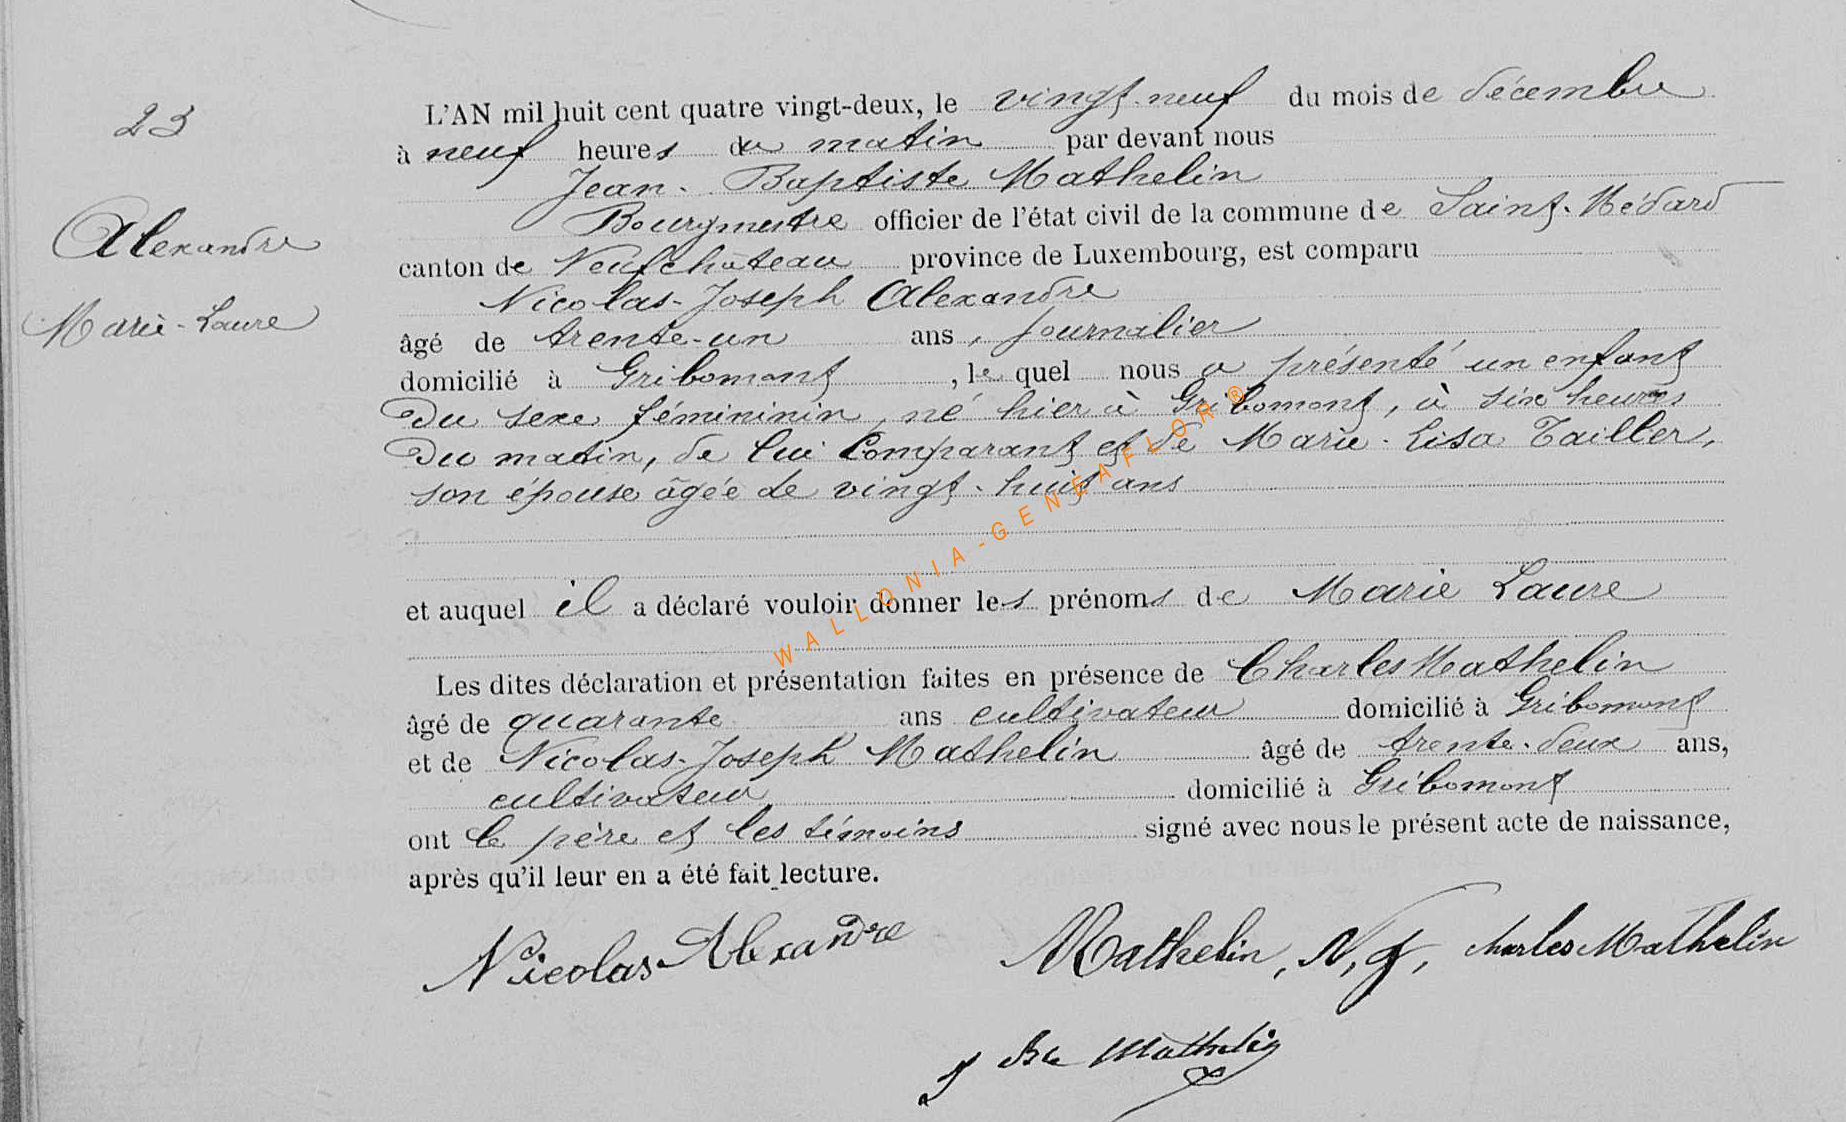 23
Alexandre
Marie-Laure
L'AN mil huit cent quatre vingt-deux, le vingt-neuf du mois de décembre
à neuf heures du matin par devant nous
Jean-Baptiste Mathelin
Bourgmestre officier de l'état civil de la commune de Saint-Médard
canton de Neufchâteau province de Luxembourg, est comparu
Nicolas-Joseph Alexandre
âgé de trente-un ans, journalier
domicilié à Gribomont, le quel nous a présenté un enfant
Du sexe fémininin, né hier à Gribomont, à six heures
Du matin, de lui Comparant et de Marie-Lisa Tailler,
son épouse âgée de vingt-huit ans
et auquel il a déclaré vouloir donner les prénoms de Marie Laure
Les dites déclaration et présentation faites en présence de Charles Mathelin
âgé de quarante ans cultivateur domicilié à Gribomont
et de Nicolas-Joseph Mathelin âgé de trente-deux ans,
cultivateur domicilié à Gribomont
ont le père et les témoins signé avec nous le présent acte de naissance,
après qu'il leur en a été fait lecture.
Nicolas Alexandre Mathelin, N, J, Charles Mathelin
J Bte Mathelin
WALLONIA-GENEAFLOR®